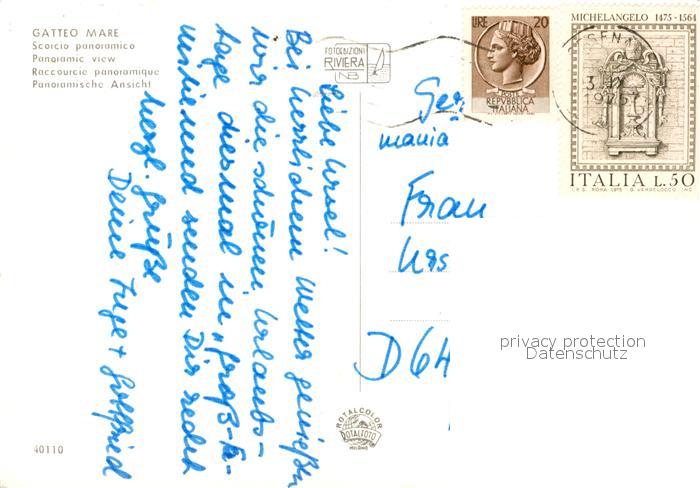 GATTEO MARE
Scorcio panoramico
Panoramic view
Raccourcie panoramique
Panoramische Ansicht
FOTOEDIZIONI
RIVIERA
NB
Liebe Ursel!
Bei herrlichem Wetter genießen
wir die schönen Urlaubs-
tage diesmal in „Groß-Fa-
milie" und senden Dir recht
herzl. Grüße
Deine Inge + Gottfried
40110
LIRE 20
POSTE
REPVBBLICA
ITALIANA
MICHELANGELO 1475-1564
ITALIA L.50
I.P.S. ROMA 1975 G. VERDELOCCO INC.
1975
Ger
mania
Frau
Urs
D 64
privacy protection
Datenschutz
ROTALCOLOR
ROTALFOTO
MILANO